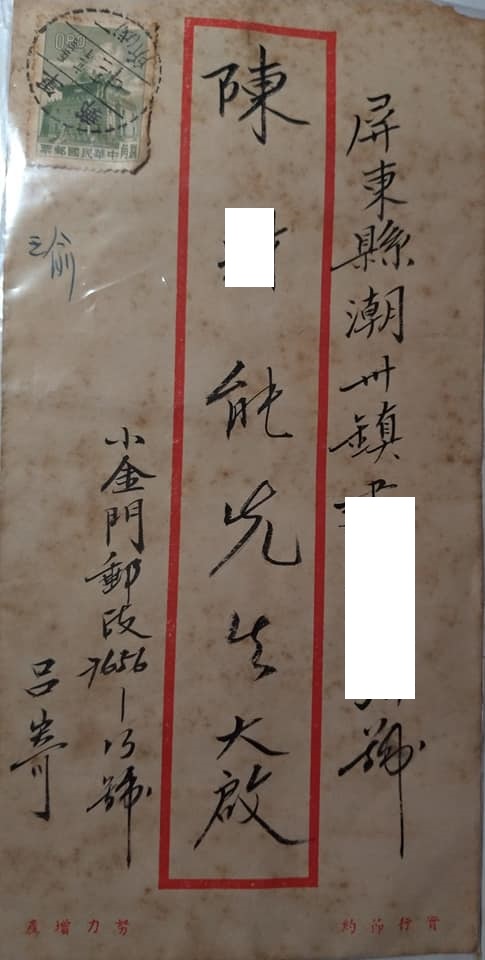 屏東縣潮州鎮
號
陳
能先生大啟
小金門郵政7656-13號
呂寄
0.80
中華民國郵票
實行節約
努力增產